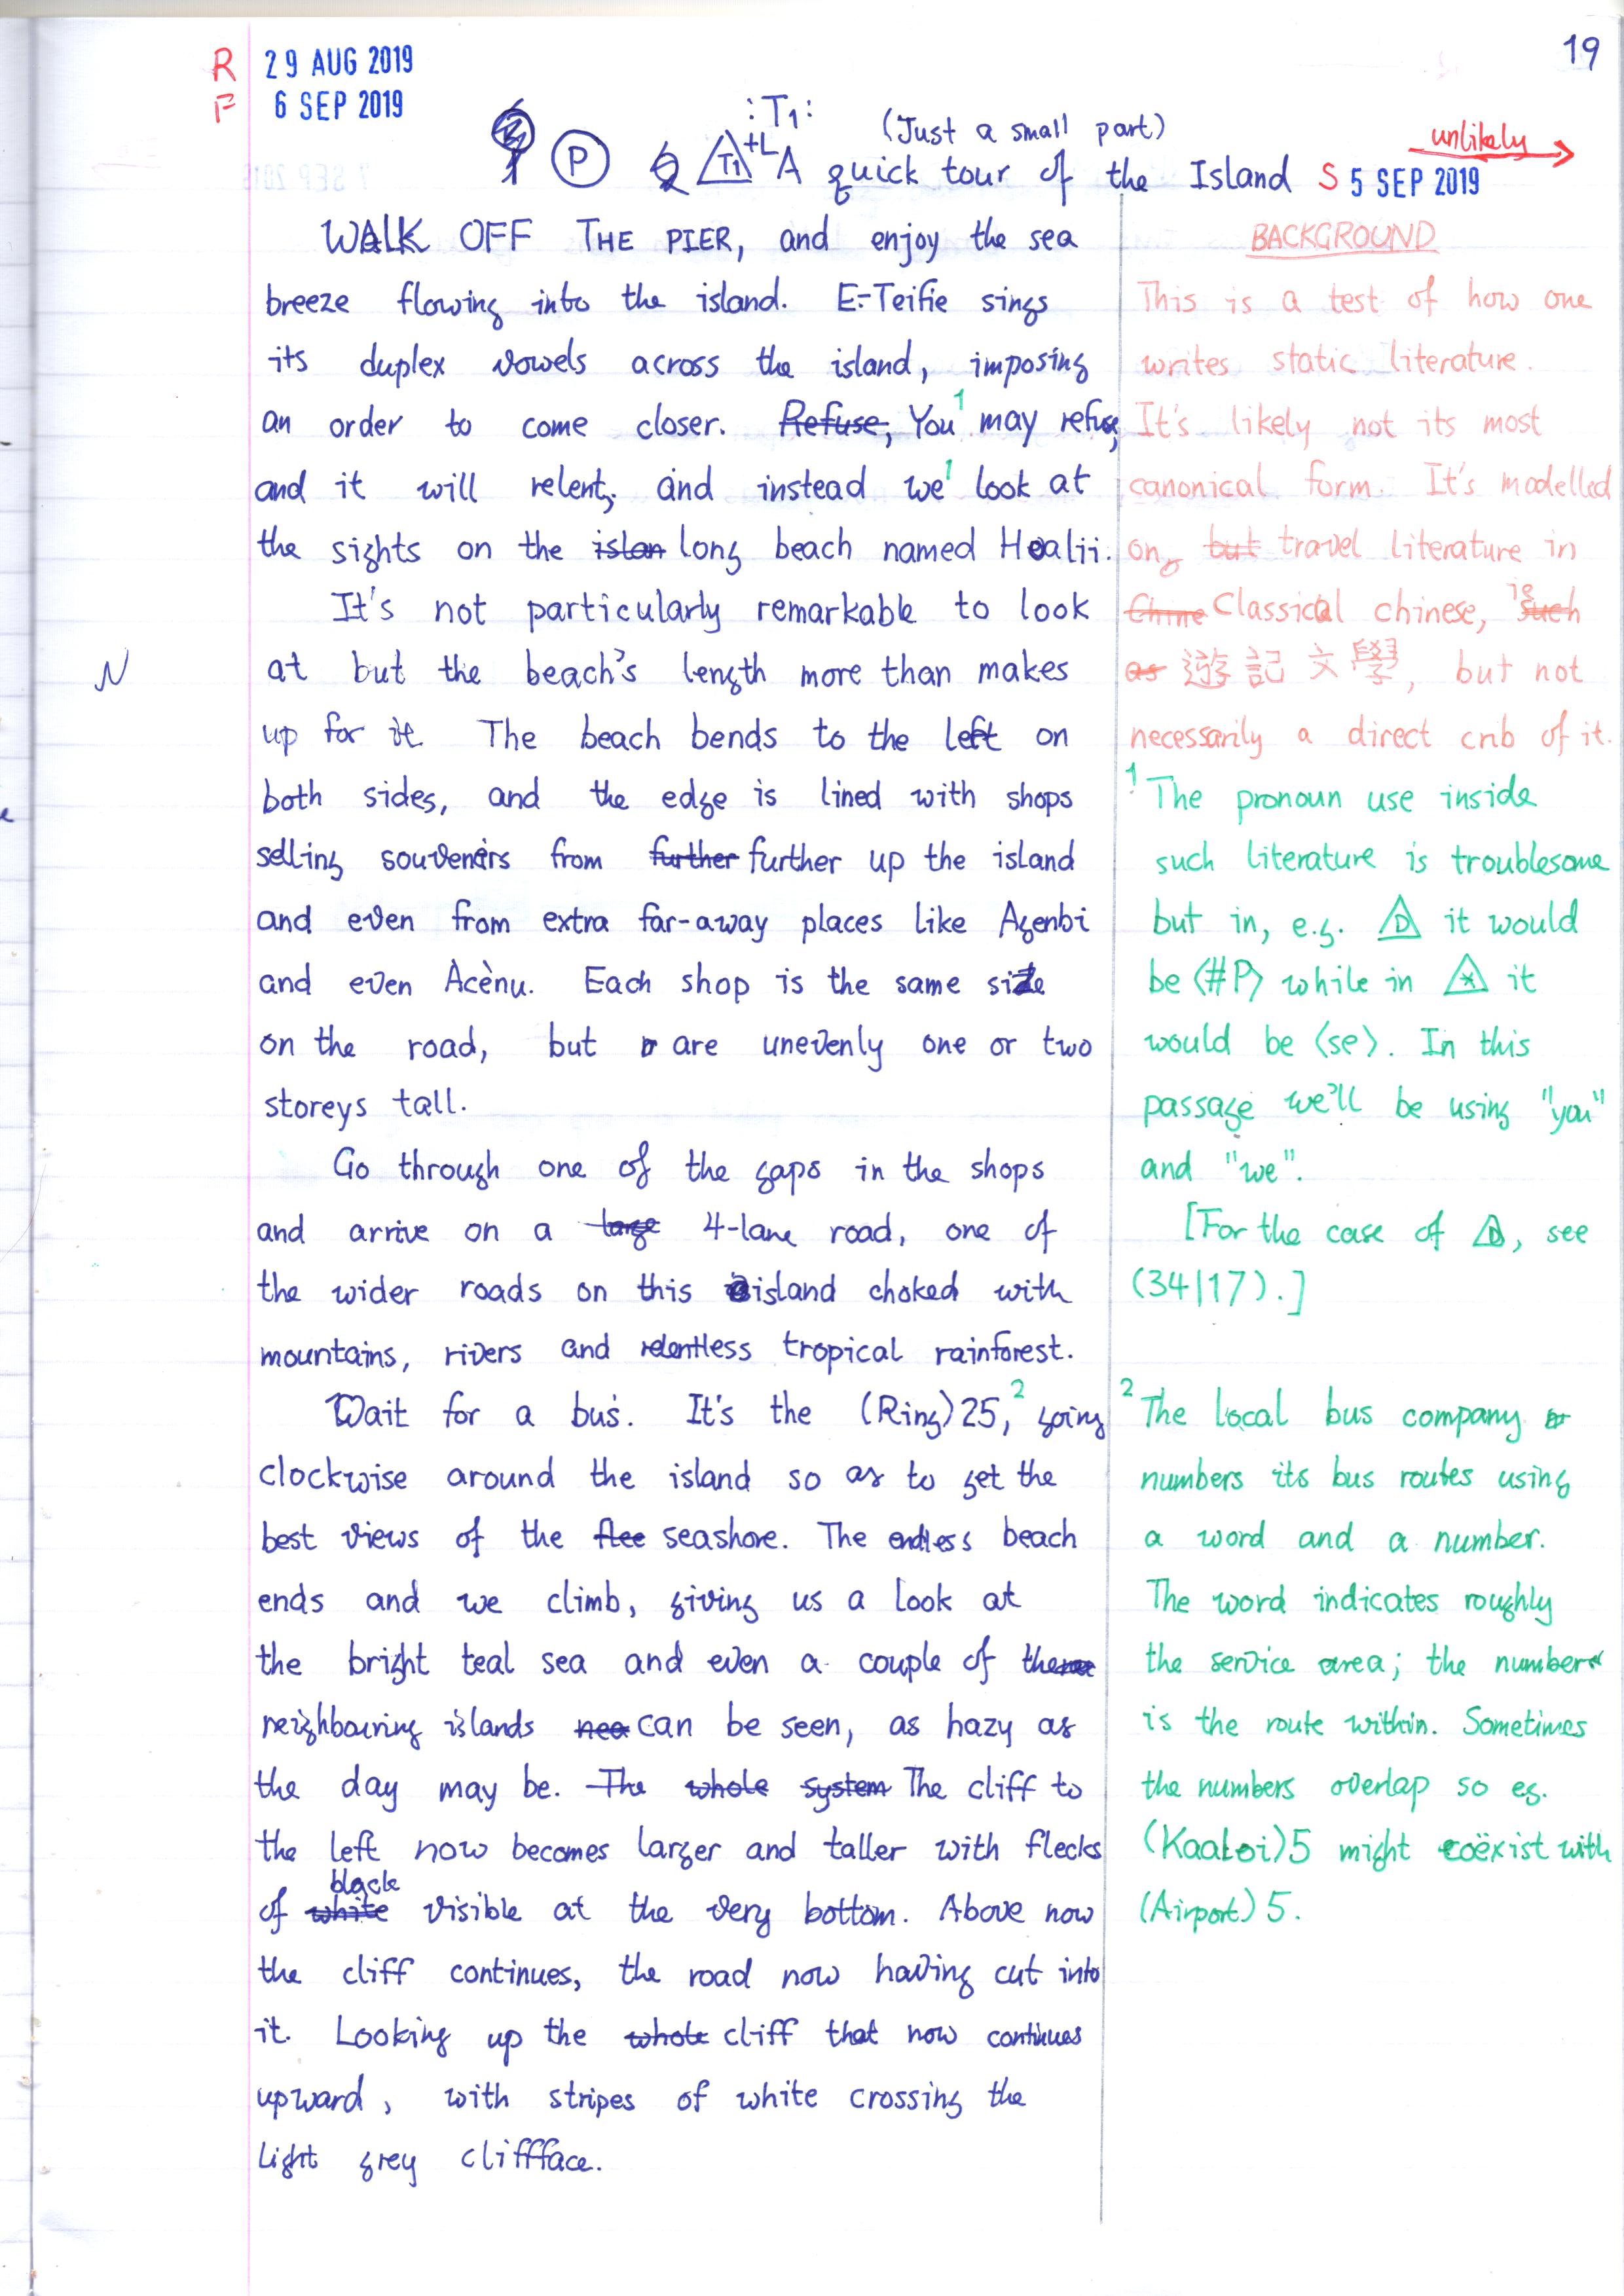 19
R 29 AUG 2019
F 6 SEP 2019
:T1:
(Just a small part)
P T1 +L A quick tour of the Island S 5 SEP 2019
unlikely
WALK OFF THE PIER, and enjoy the sea
breeze flowing into the island. E-Teifie sings
its duplex vowels across the island, imposing
an order to come closer. Refuse, You¹ may refuse,
and it will relent, and instead we¹ look at
the sights on the islan long beach named Hoalii.
It's not particularly remarkable to look
N
at but the beach's length more than makes
up for it. The beach bends to the left on
both sides, and the edge is lined with shops
selling souvenirs from further further up the island
and even from extra far-away places like Agenbi
and even Acènu. Each shop is the same size
on the road, but are unevenly one or two
storeys tall.
Go through one of the gaps in the shops
and arrive on a large 4-lane road, one of
the wider roads on this island choked with
mountains, rivers and relentless tropical rainforest.
Wait for a bus. It's the (Ring)25,² going
clockwise around the island so as to get the
best views of the flee seashore. The endless beach
ends and we climb, giving us a look at
the bright teal sea and even a couple of
neighbouring islands nea can be seen, as hazy as
the day may be. The whole system The cliff to
the left now becomes larger and taller with flecks
black
of white visible at the very bottom. Above now
the cliff continues, the road now having cut into
it. Looking up the whole cliff that now continues
upward, with stripes of white crossing the
light grey cliffface.
BACKGROUND
This is a test of how one
writes static literature.
It's likely not its most
canonical form. It's modelled
on, but travel literature in
Chine Classical chinese, ie such
as 遊記文學, but not
necessarily a direct cnb of it.
¹ The pronoun use inside
such literature is troublesome
but in, e.g. D it would
be ⟨#P⟩ while in * it
would be ⟨se⟩. In this
passage we'll be using "you"
and "we".
[For the case of D, see
(34|17).]
² The local bus company
numbers its bus routes using
a word and a number.
The word indicates roughly
the service area; the number
is the route within. Sometimes
the numbers overlap so eg.
(Kaaloi)5 might coëxist with
(Airport)5.